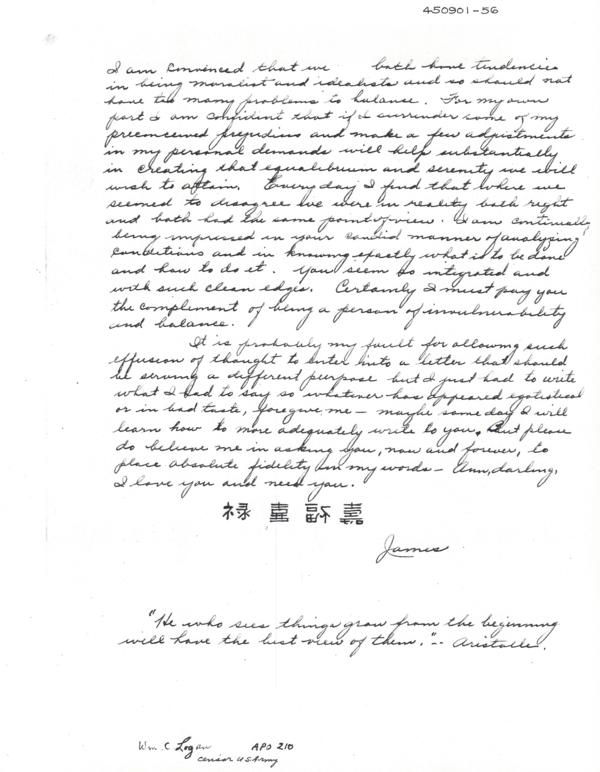 450901-56
I am convinced that we both have tendencies
in being moralist and idealists and so should not
have too many problems to balance. For my own
part I am confident that if I surrender some of my
preconceived prejudices and make a few adjustments
in my personal demands will help substantially
in creating that equalibrium and serenity we will
wish to attain. Everyday I find that where we
seemed to disagree we were in reality both right
and both had the same point of view. I am continually
being impressed in your candid manner of analyzing
conditions and in knowing exactly what is to be done
and how to do it. You seem so integrated and
with such clean edges. Certainly I must pay you
the complement of being a person of invulnerability
and balance.
It is probably my fault for allowing such
effusion of thought to enter into a letter that should
be serving a different purpose but I just had to write
what I had to say so whatever has appeared egotistical
or in bad taste, foregive me - maybe some day I will
learn how to more adequately write to you. But please
do believe me in asking you, now and forever, to
place absolute fidelity in my words - Ann, darling,
I love you and need you.
祿 壽 福 嘉
James
"He who sees things grow from the beginning
will have the best view of them." -- Aristotle.
Wm. C Logan APO 210
censor US Army